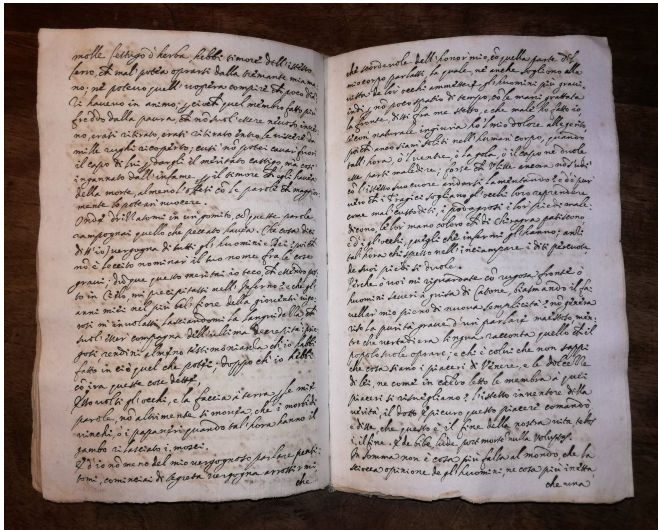 molle festuco d'herba, hebbi timore dell'istesso
ferro, che mal potea oprarsi dalla tremante mia ma-
no; nè potevo quell'opera compire che poco dinã-
zi havevo in animo; poiche quel membro fatto più
freddo dalla paura, che nõ suol essere nevoso inver-
no, erasi ritirato, erasi ritirato entro le viscere da
mille rughi ricoperto; cosi nõ potei cavar fuori
il capo di lui, e dargli il meritato castigo, ma cosi
ingannato dall'infame, per il timore che egli haveva
della morte, almeno stetti cõ le parole che maggior-
mente lo potean nuocere.
Onde drizzatomi in un gomito, cõ queste parole
rampognai quello che peccato havea. Che cosa dici
di tu ò vergogna di tutti gli huomini e Dei? poiche
nõ è lecito nominar il tuo nome fra le cose
gravi; dunque questo meritai io teco, che essendo pos-
to in Cielo, mi precipitassi nell'Inferno? e che gli
anni miei nel più bel fiore della gioventù vigo-
rosi m'involassi, lasciandomi la languidezza che
suol esser compagna dell'ultima decrepità? prie-
goti, rendimi almeno testimonianza ch'io habbi
fatto in ciò quel che potei; doppo ch'io hebbi
cõ ira queste cose dette
Esso volti gli occhi, e la faccia à terra, per le mie
parole, nõ altrimente si mosse, che i morbidi
vinchi, ò i papaveri quando tal'hora hanno il
gambo rilasciato i mossi.
Ed io nõ meno del mio vergognoso parlare penti-
tomi, cominciai di segreta vergogna arrossirmi,
che
che scordevole dell'honor mio, cõ quella parte del
mio corpo parlassi, la quale, ne anche sogliono alla
vista de lor occhi ammettere gli huomini più gravi,
indi, nõ poco spatio di tempo, cõ le mani grattata
la fronte. Dissi fra me stesso, e che male hò fatto io
se con naturale ingiuria hò il mio dolore allegerito
poiche anco siam soliti nell'humani corpo, quando
tall'hora, ò il ventre, ò la gola, ò il capo ne duole
esse parti maledire; forse che Ulisse ancora nõ hebbe
cõ l'istesso suo cuore andersi lamentando? e di più
vero che i Tragici sogliono gli occhi loro reprendere
come mal custoditi, i podagrosi i lor piedi male-
dicono, le lor mano coloro che di chiragra patiscono
ed i gli occhi, quegli che infermi gli hanno; anzi
tal'hora chi spesso nell'inciampare i diti percuote,
de suoi piedi si duole.
Perche ò voi mi riguardate cõ rugosa fronte ò
huomini severi à guisa di Catone, biasmando il fa-
vellar mio pieno di nuova semplicità? nõ genera
rito la purità grave d'un parlare maestoso men-
tre che verdadiera lingua racconta quello che il
popolo suole oprare; e chi è colui che non sappi
che cosa siano i piaceri di Venere, e le dolcezze
di lei, ne come in celebre letto le membra à quei
piaceri si risvegliano? l'istesso inventore della
verità, il dotto epicuro questo piacere comandò
e disse, che questo è il fine della nostra vita
il fine.
In somma non è cosa più falsa al mondo, che la
sciocca opinione de gli huomini, ne cosa più inetta,
che una